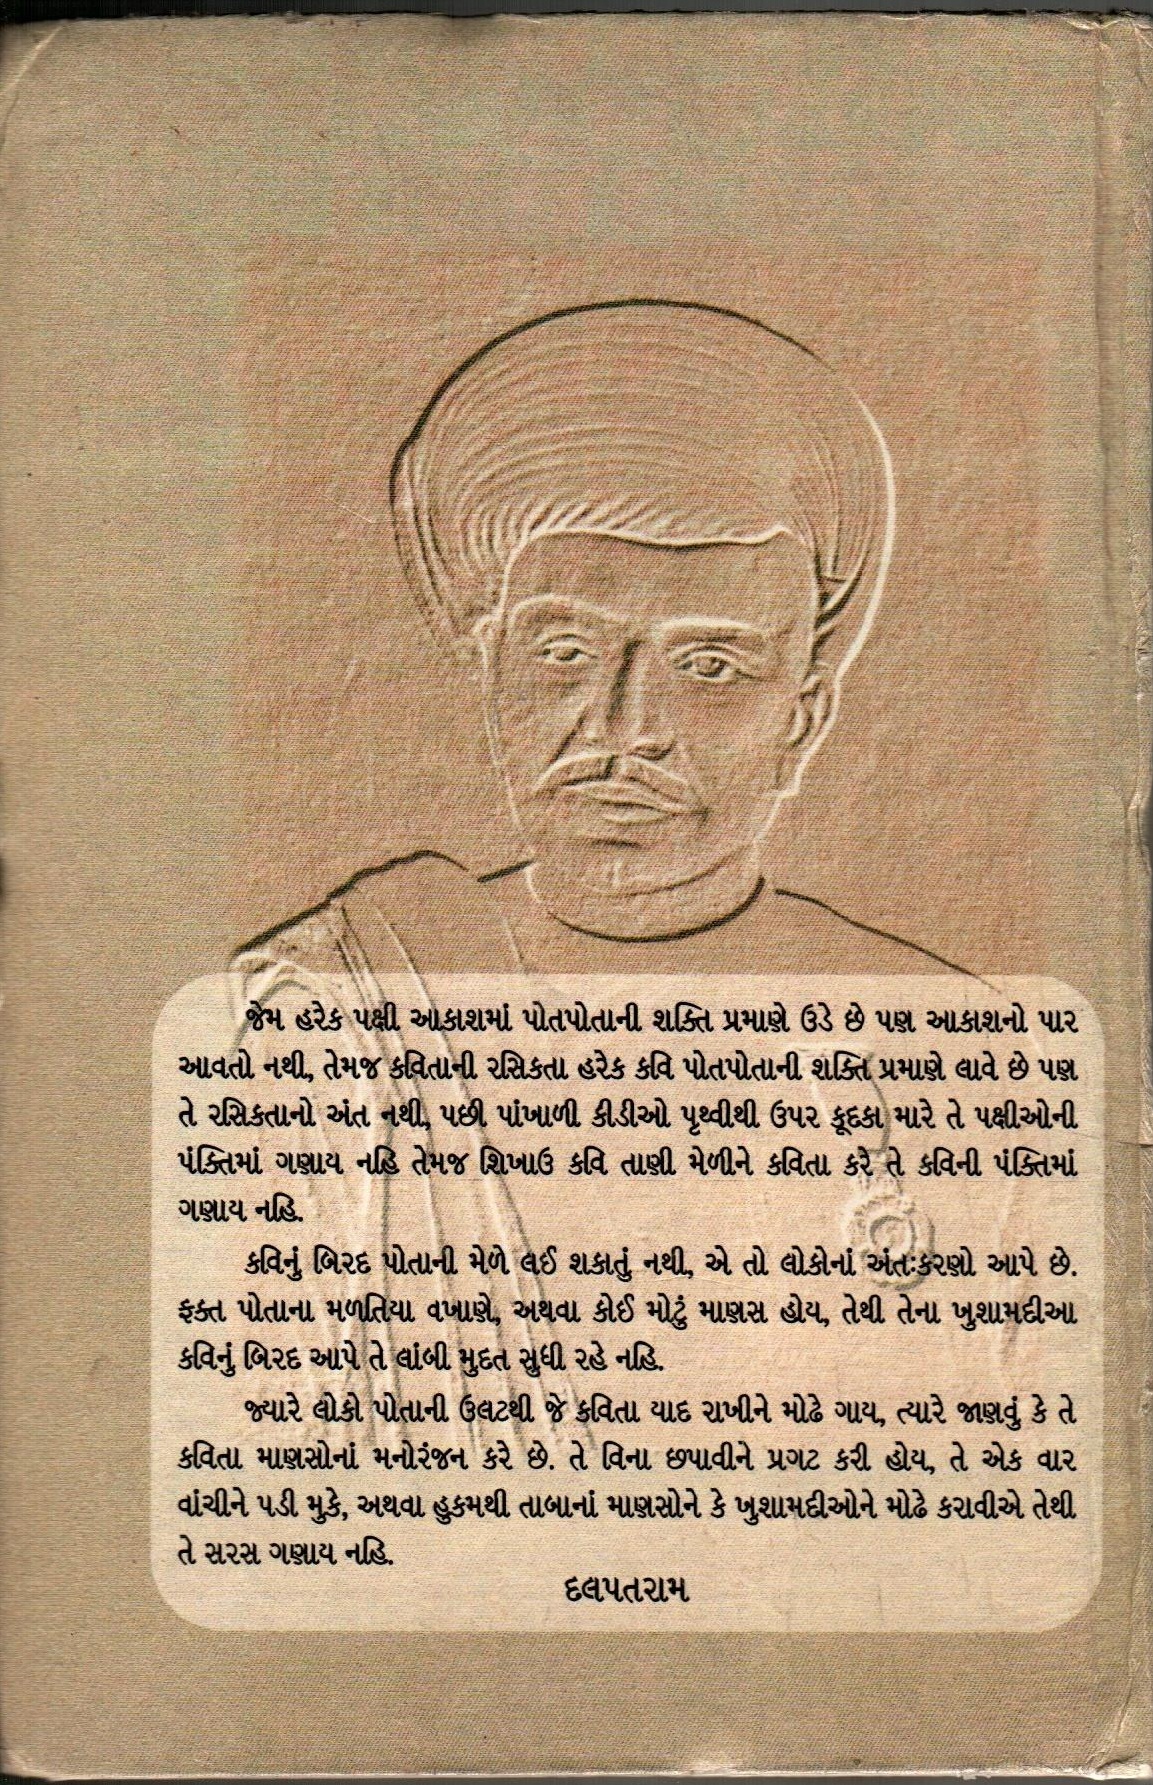 જેમ હરેક પક્ષી આકાશમાં પોતપોતાની શક્તિ પ્રમાણે ઉડે છે પણ આકાશનો પાર
આવતો નથી, તેમજ કવિતાની રસિકતા હરેક કવિ પોતપોતાની શક્તિ પ્રમાણે લાવે છે પણ
તે રસિકતાનો અંત નથી, પછી પાંખાળી કીડીઓ પૃથ્વીથી ઉપર કૂદકા મારે તે પક્ષીઓની
પંક્તિમાં ગણાય નહિ તેમજ શિખાઉ કવિ તાણી મેળીને કવિતા કરે તે કવિની પંક્તિમાં
ગણાય નહિ.
કવિનું બિરદ પોતાની મેળે લઈ શકાતું નથી, એ તો લોકોનાં અંતઃકરણો આપે છે.
ફક્ત પોતાના મળતિયા વખાણે, અથવા કોઈ મોટું માણસ હોય, તેથી તેના ખુશામદીઆ
કવિનું બિરદ આપે તે લાંબી મુદત સુધી રહે નહિ.
જ્યારે લોકો પોતાની ઉલટથી જે કવિતા યાદ રાખીને મોઢે ગાય, ત્યારે જાણવું કે તે
કવિતા માણસોનાં મનોરંજન કરે છે. તે વિના છપાવીને પ્રગટ કરી હોય, તે એક વાર
વાંચીને પડી મુકે, અથવા હુકમથી તાબાનાં માણસોને કે ખુશામદીઓને મોઢે કરાવીએ તેથી
તે સરસ ગણાય નહિ.
દલપતરામ